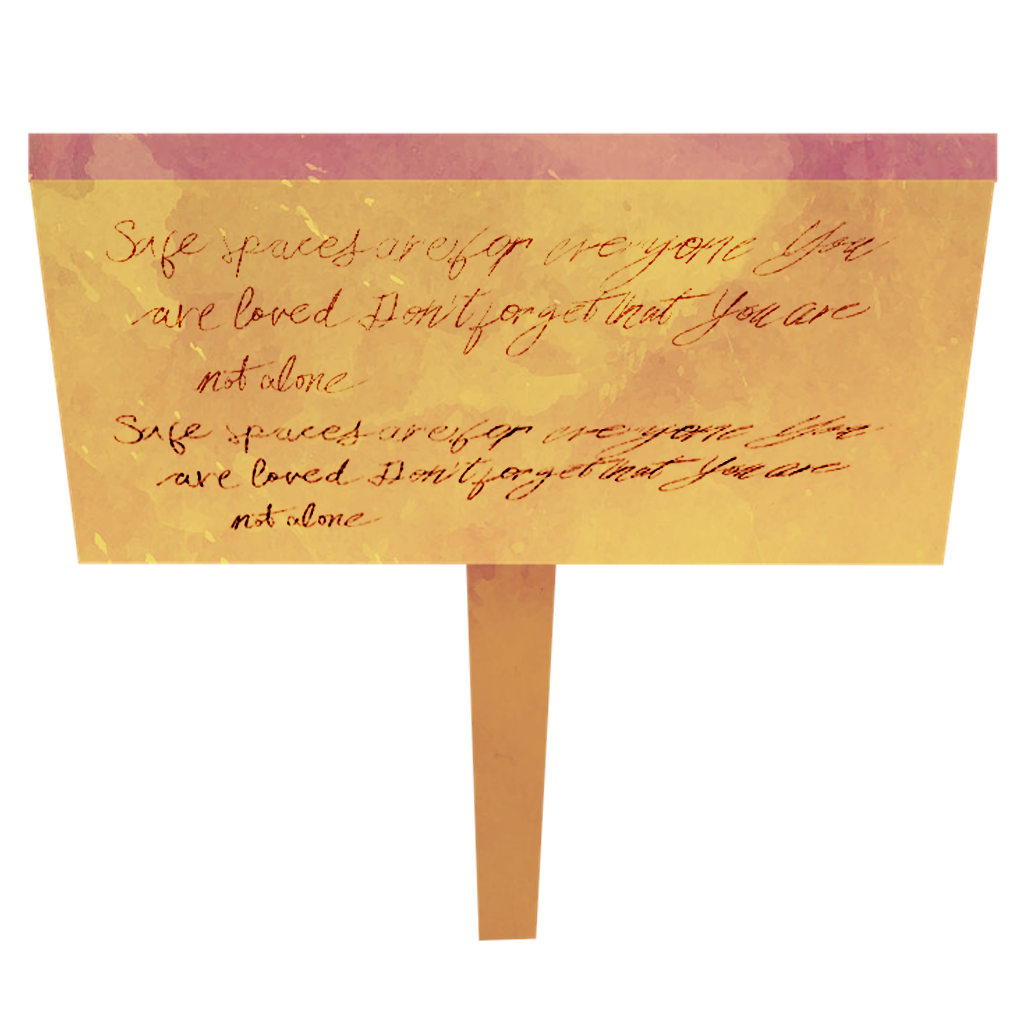 Safe spaces are for everyone You
are loved Don't forget that You are
not alone
Safe spaces are for everyone You
are loved Don't forget that You are
not alone